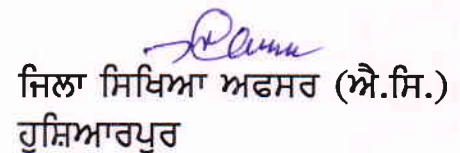 ਜਿਲਾ ਸਿਖਿਆ ਅਫਸਰ (ਐ.ਸਿ.)
ਹੁਸ਼ਿਆਰਪੁਰ